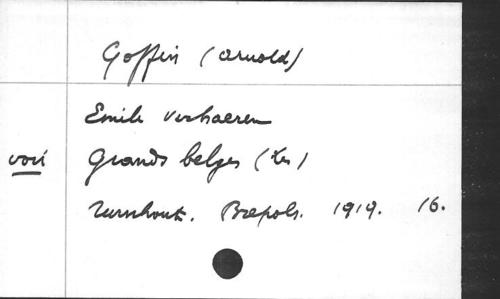 Goffin (Arnold)
Emile Verhaeren
voir Grands belges (Les)
Turnhout. Brepols. 1919. 16.